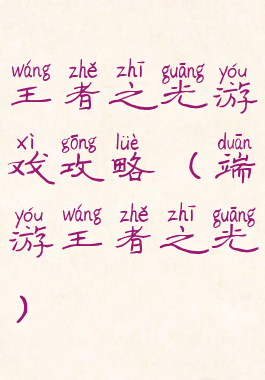 wáng zhě zhī guāng yóu
王者之光游
xì gōng lüè duān
戏攻略(端
yóu wáng zhě zhī guāng
游王者之光
)